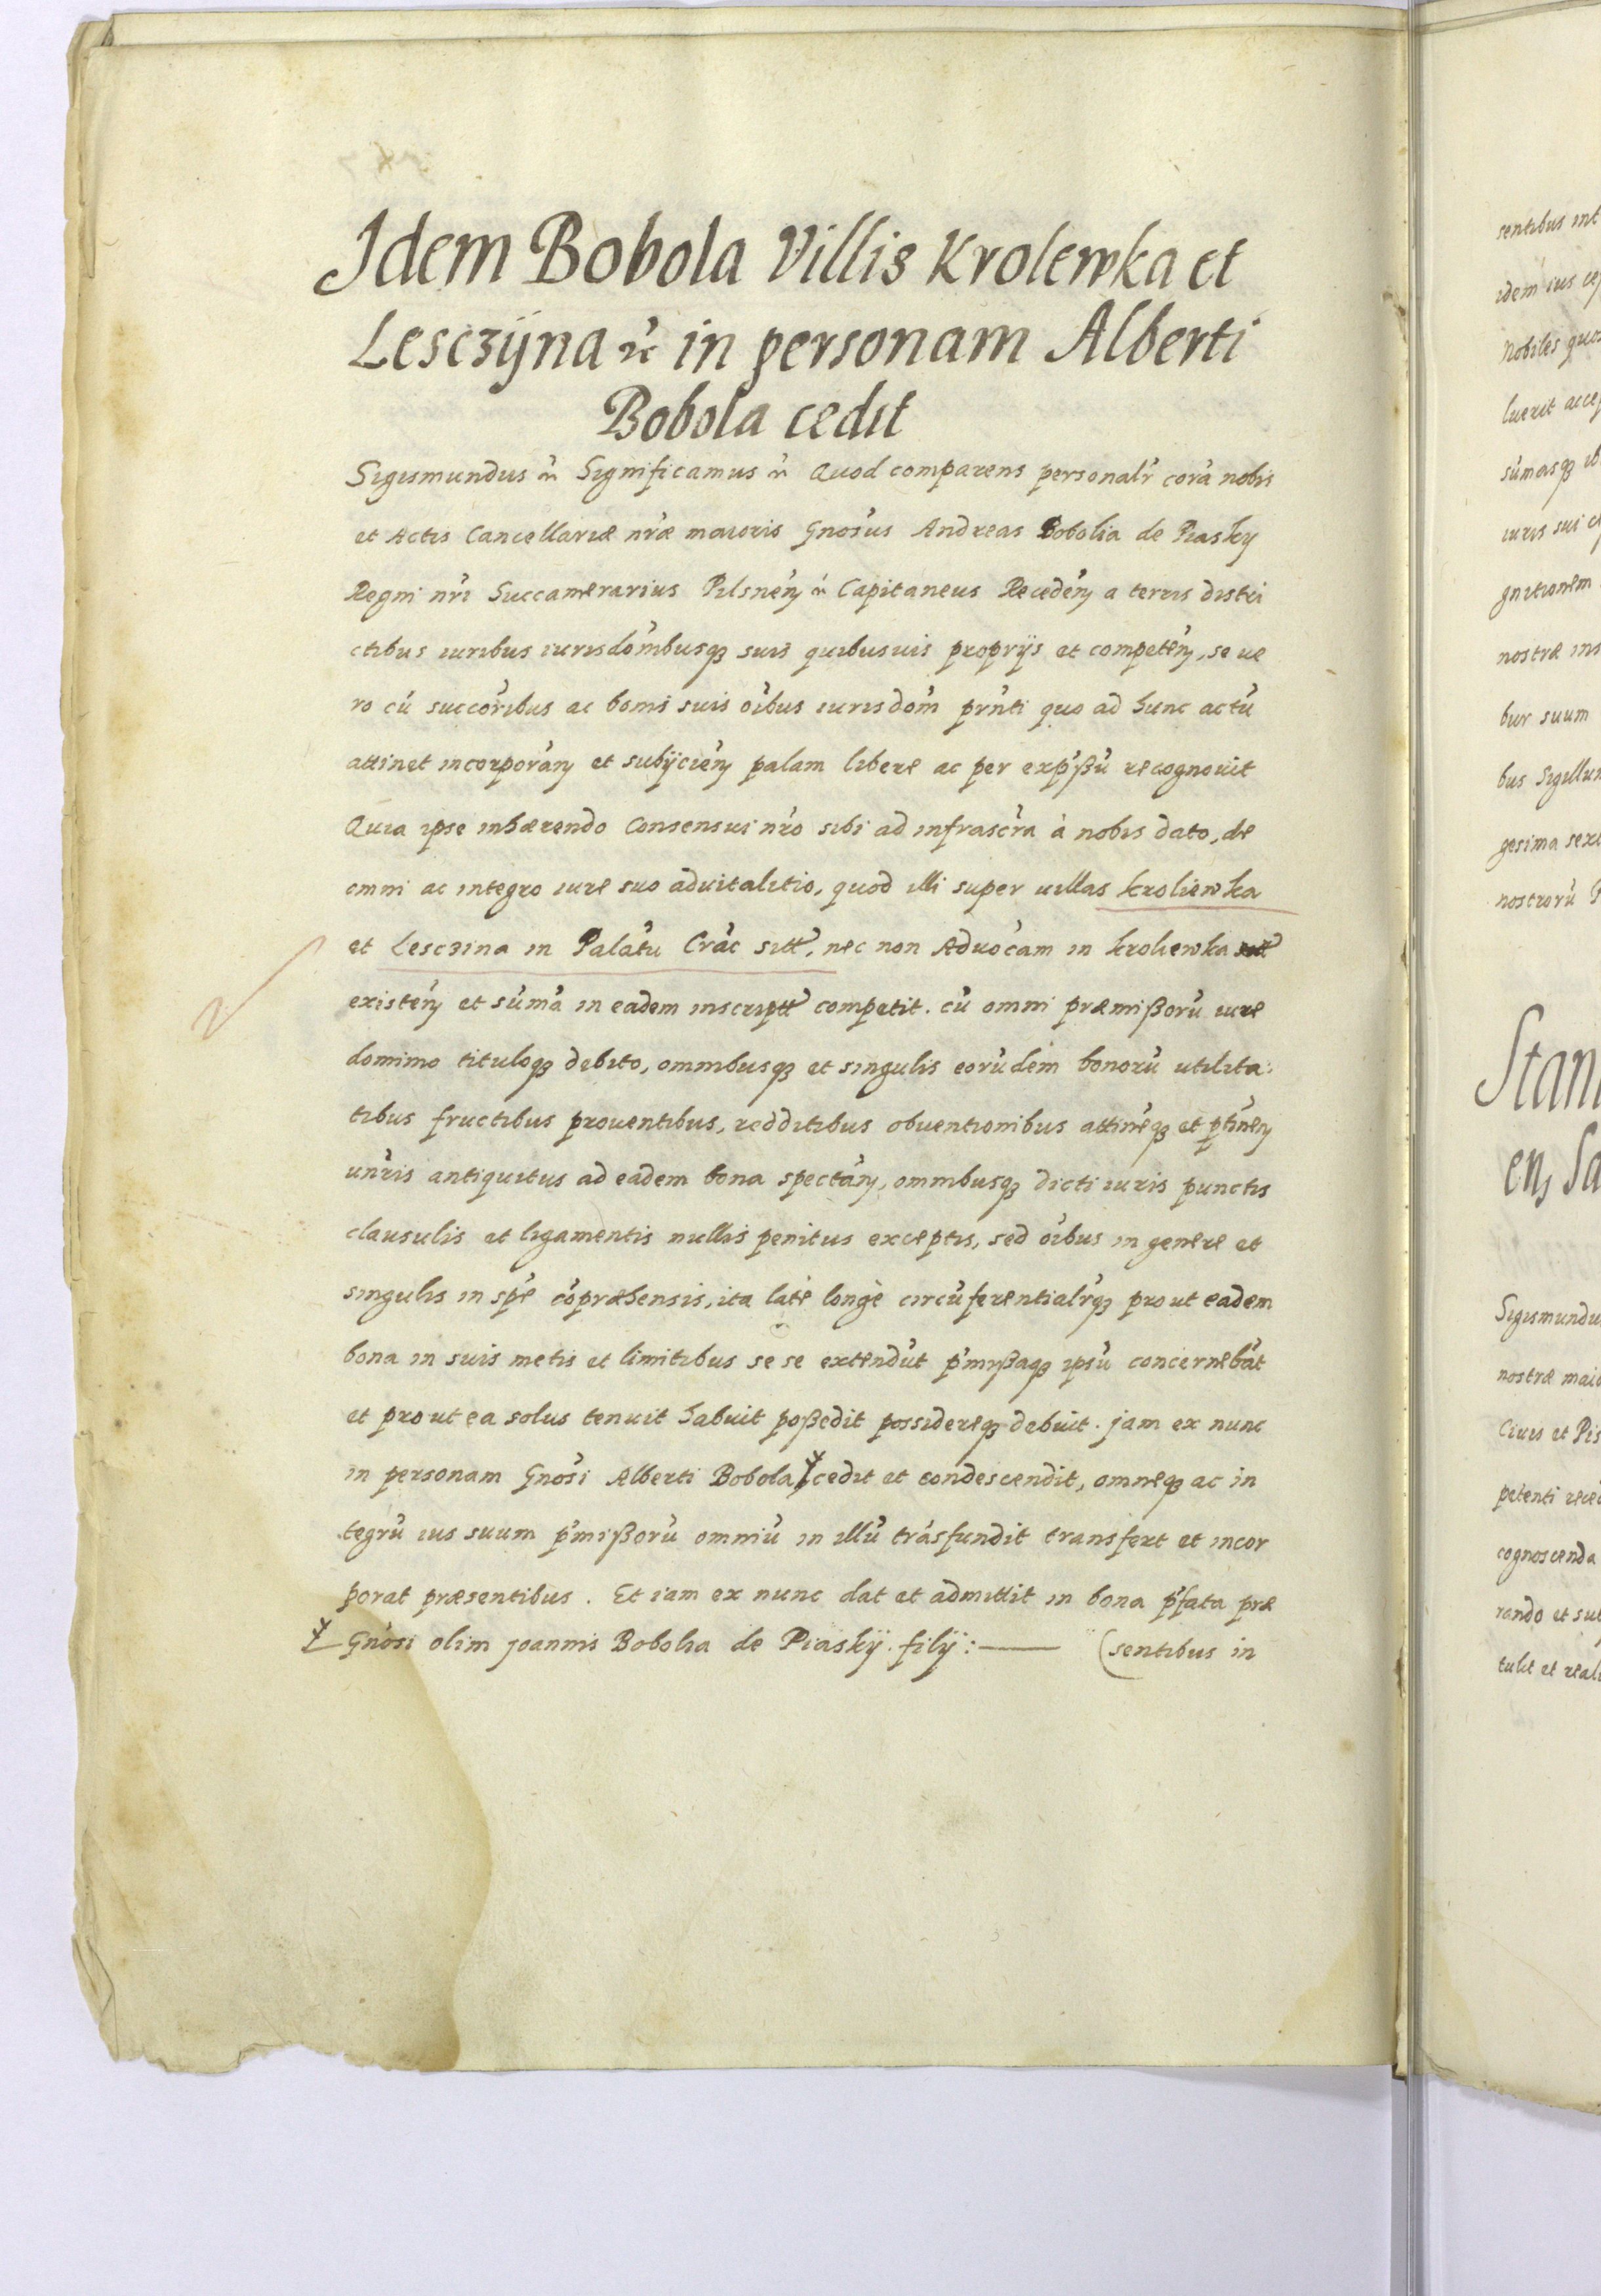 Idem Bobola Villis Krolewka et
Lesczÿna etc in personam Alberti
Bobola cedit
Sigismundus etc Significamus etc Quod comparens personalr̃ corã nobis
et Actis Cancellariæ nr̃æ maioris Gnõsus Andreas Bobolia de Piasky
Regni nr̃i Succamerarius Pilsneñ etc Capitaneus Recedeñ a terris distri
ctibus iuribus iurisdõnibusqȝ suis quibusuis proprijs et competeñ, se ve
ro cũ succõribus ac bonis suis oĩbus iurisdõni prñti quo ad hunc actũ
attinet incorporañ et subÿcieñ palam libere ac per exp̃ßũ recognouit
Quia ipse inhærendo Consensui nr̃o sibi ad infrascr̃a à nobis dato, de
omni ac integro iure suo aduitalitio, quod illi super uillas Kroliewka
et Lesczina in Palãtu Crãc sitt̃, nec non Aduocãm in Kroliewka
existeñ et sũmã in eadem inscriptt̃ competit. cũ omni præmißorũ iure
dominio tituloqȝ debito, omnibusqȝ et singulis eorũdem bonorũ utilita:
tibus fructibus prouentibus, redditibus obuentionibus attineñqȝ et ptineñ
unr̃is antiquitus ad eadem bona spectañ, omnibusqȝ dicti iuris punctis
clausulis et ligamentis nullis penitus exceptis, sed oĩbus in genere et
singulis in spẽ cõpræhensis, ita latè longè circũferentialr̃qȝ prout eadem
bona in suis metis et limitibus se se extendũt p̃mißaqȝ ipsũ concernebãt
et prout ea solus tenuit habuit poßedit possidereqȝ debuit. jam ex nunc
in personam Gnõsi Alberti Bobola cedit et condescendit, omneqȝ ac in
tegrũ ius suum p̃mißorũ omniũ in illũ trãsfundit transfert et incor
porat præsentibus. Et iam ex nunc dat et admittit in bona p̃fata præ
Gnõsi olim joannis Bobolia de Piaskÿ filÿ: (sentibus in
sentibus int
idem ius ce
Nobiles quo
luerit acce
sũmasqȝ ib
iuris sui
gnitionem
nostræ ins
bur suum
bus Sigillu
gesima sex
nostrorũ
Stani
en Sa
Sigismundu
nostræ maio
Ciuis et Pis
petenti rece
cognoscenda
rando et su
tulit et reali